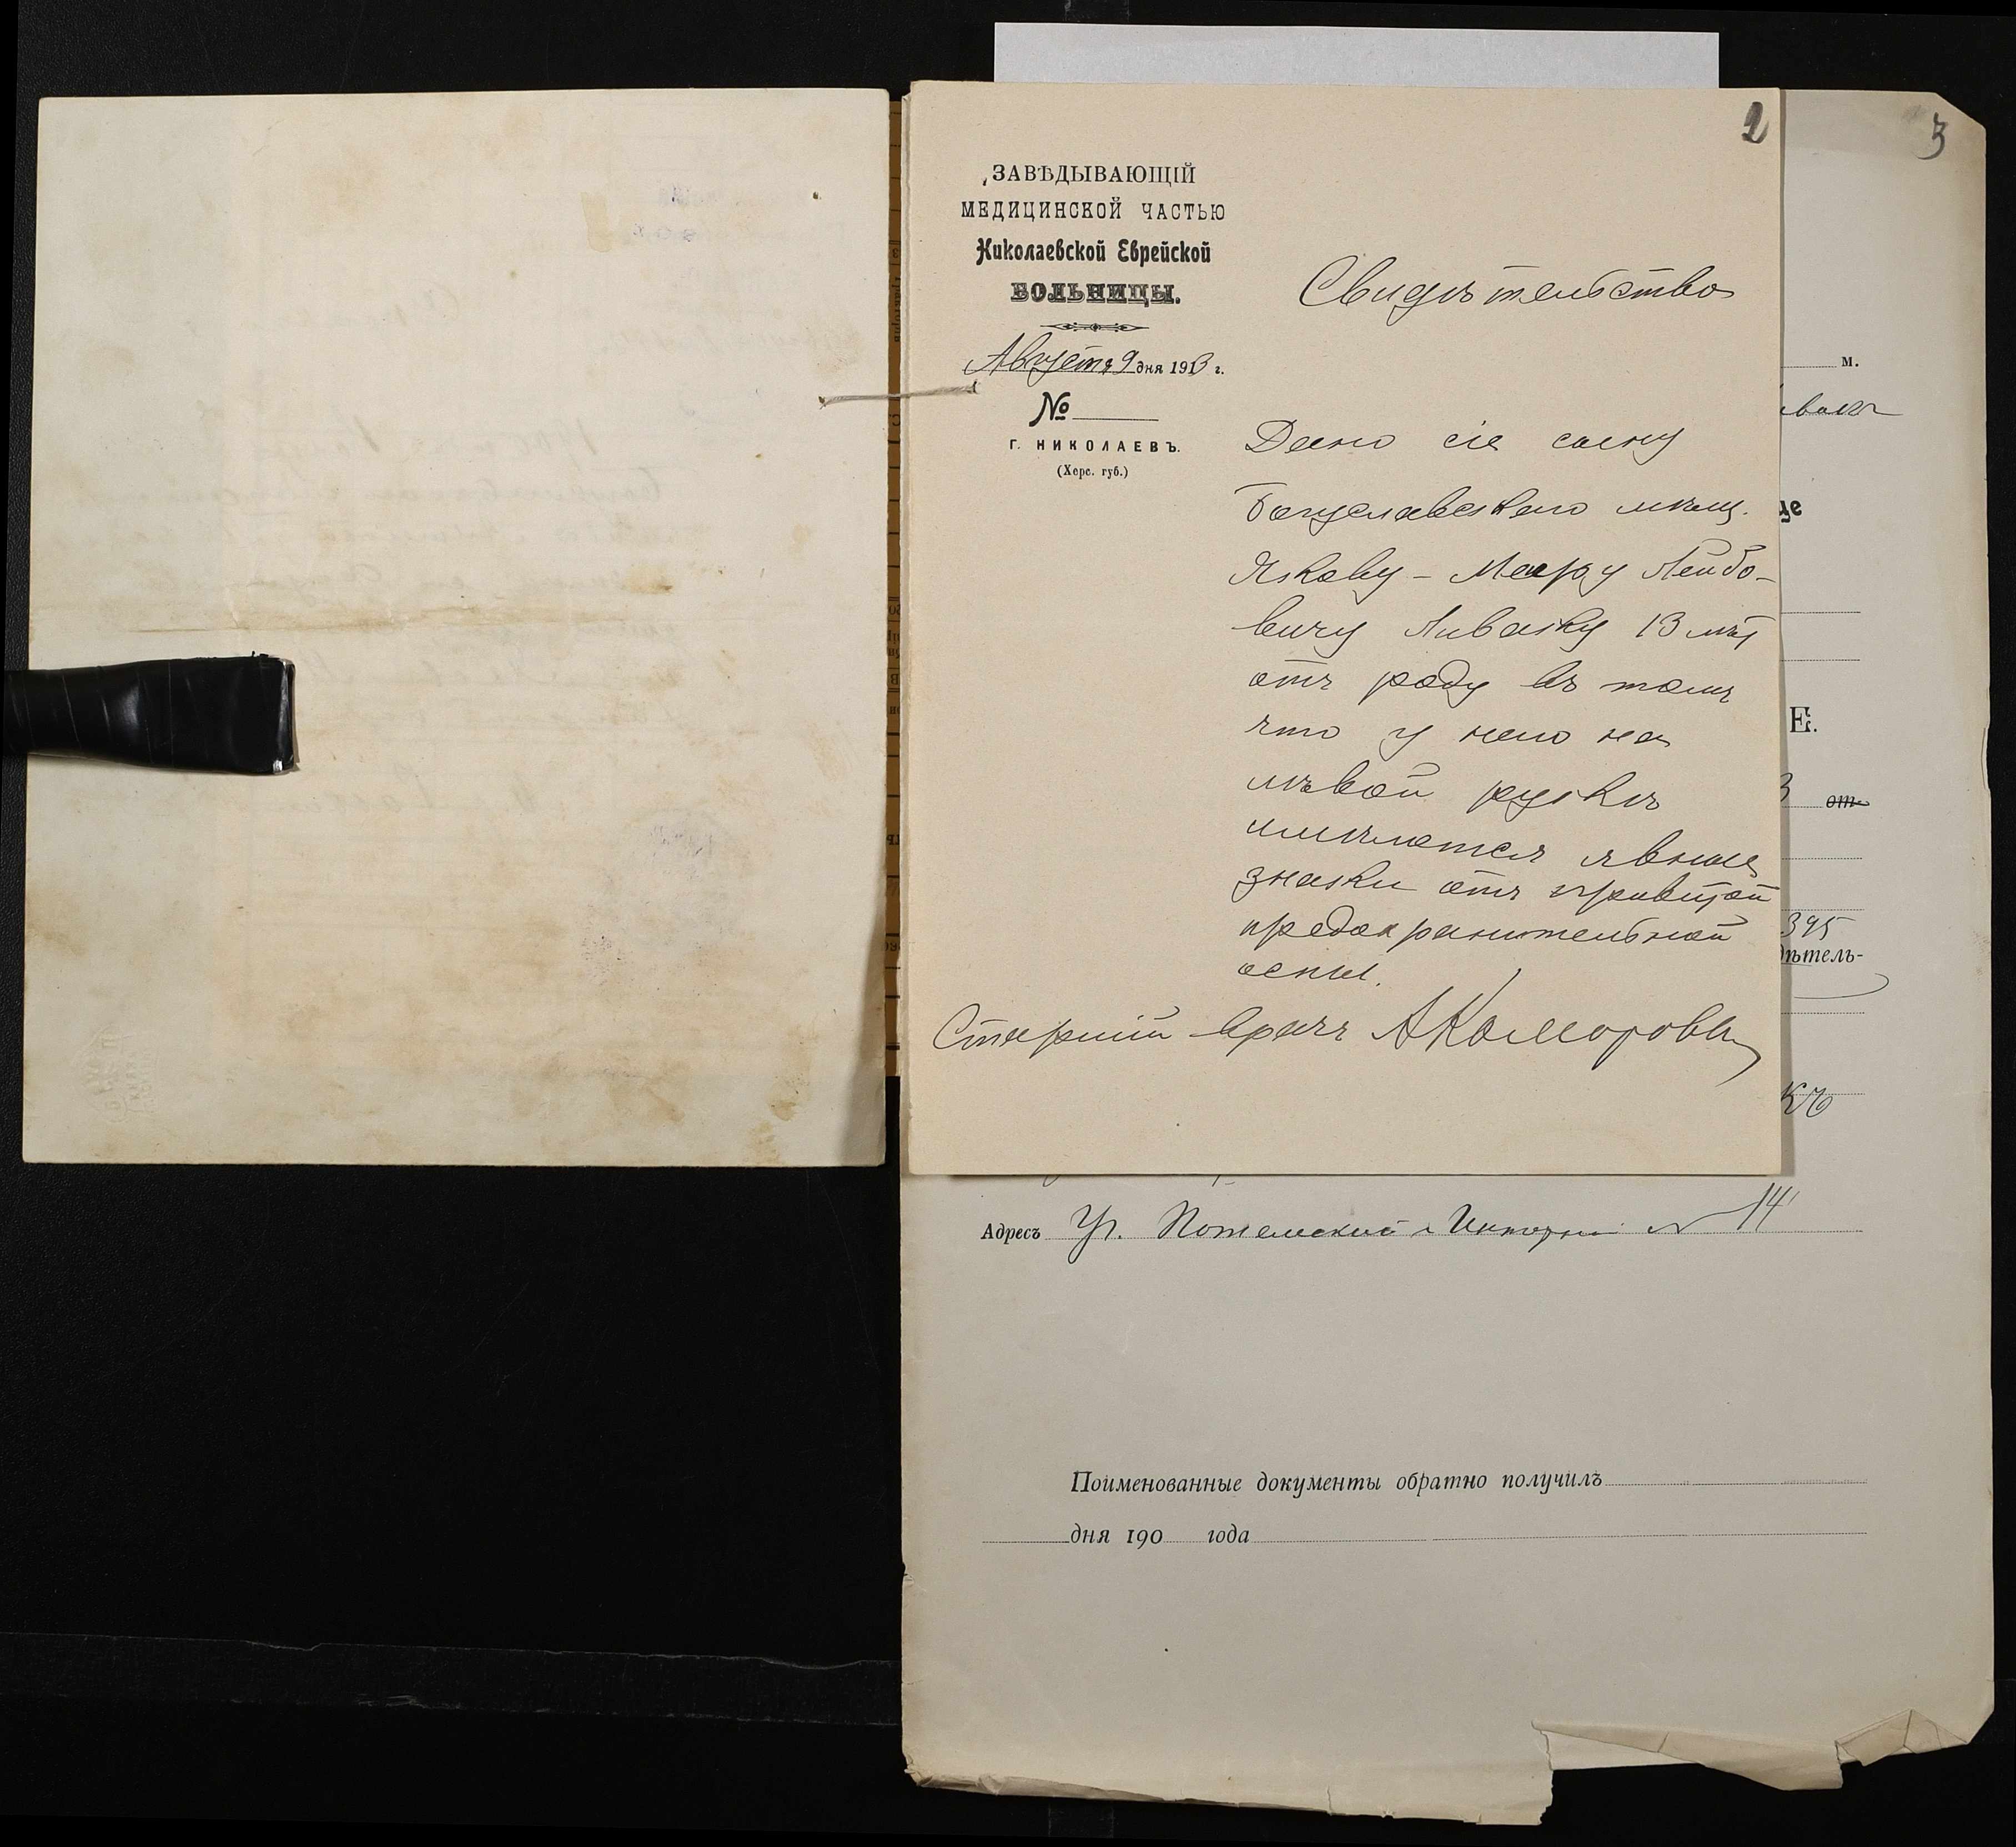 2
ЗАВѢДЫВАЮЩІЙ
МЕДИЦИНСКОЙ ЧАСТЬЮ
Николаевской Еврейской
БОЛЬНИЦЫ.
Августа 9 дня 1913 г.
№
Г. НИКОЛАЕВЪ.
(Херс. губ.)
Свидѣтельство
Дано сіе сыну
Богуславскаго мѣщ.
Якову - Мееру Лейбо-
вичу Ливаку 13 лѣт
отъ роду въ томъ
что у него на
лѣвой рукѣ
имѣются явные
знаки отъ привитой
предохранительной
оспы.
Старшій врачъ АКоморовъ
3
м.
це
Е.
3 от
395
дѣтель-
къ
Адресъ Уг. Потемской и № 14
Поименованные документы обратно получилъ
дня 190 года